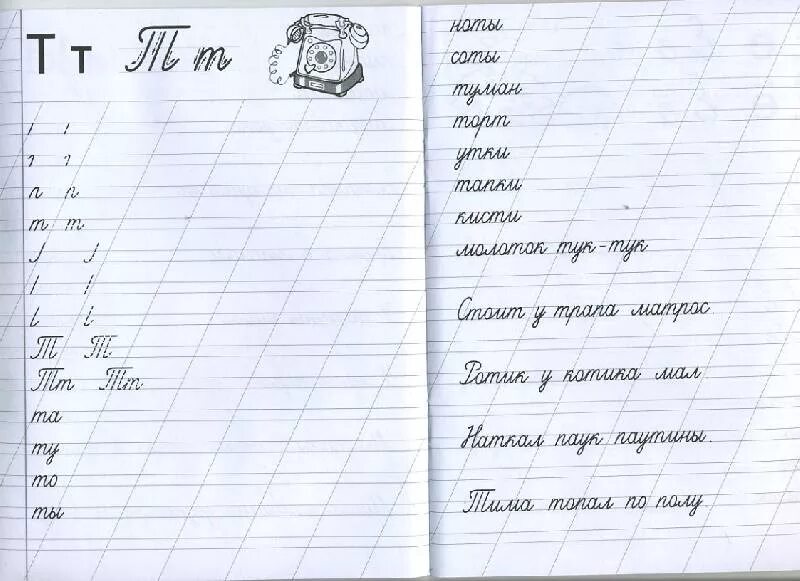 Т т Т т
т т
Т Т
Тт Тт
та
ту
то
ты
ноты
соты
туман
торт
утки
тапки
кисти
молоток тук-тук
Стоит у трапа матрос.
Ротик у котика мал.
Наткал паук паутины.
Тима топал по полу.